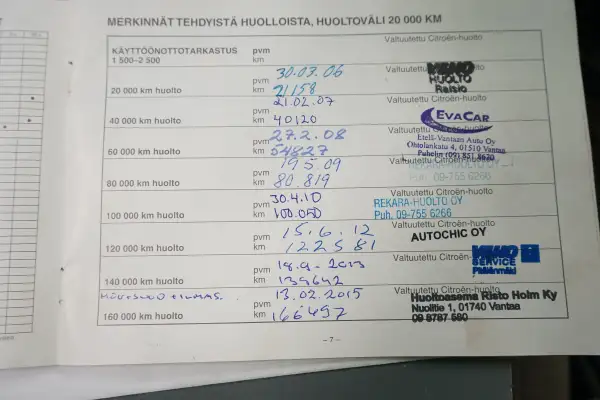 MERKINNÄT TEHDYISTÄ HUOLLOISTA, HUOLTOVÄLI 20 000 KM
KÄYTTÖÖNOTTOTARKASTUS pvm Valtuutettu Citroën-huolto
1 500–2 500 km
pvm 30.03.06 Valtuutettu
20 000 km huolto km 21158 HUOLTO
Raisio
pvm 21.02.07 Valtuutettu Citroën-huolto
40 000 km huolto km 40120 EVACAR
pvm 27.2.08 Valtuutettu
Etelä-Vantaan Auto Oy
60 000 km huolto km 54827 Ohtolankatu 4, 01510 Vantaa
Puhelin (09) 851 3620
pvm 19 5 09 Valtuutettu Citroën-huolto
80 000 km huolto km 80.819 Puh. 09-755 6266
pvm 30.4.10 Valtuutettu Citroën-huolto
100 000 km huolto km 100.050 REKARA-HUOLTO OY
Puh. 09-755 6266
pvm 15.6.12 Valtuutettu Citroën-huolto
120 000 km huolto km 122581 AUTOCHIC OY
pvm 18.9.2013 Valtuutettu Citroën-
140 000 km huolto km 139642 SERVICE
pvm 13.02.2015 Valtuutettu Citroën-huolto
160 000 km huolto km 166497 Huoltoasema Risto Holm Ky
Nuolitie 1, 01740 Vantaa
09 8787 580
– 7 –